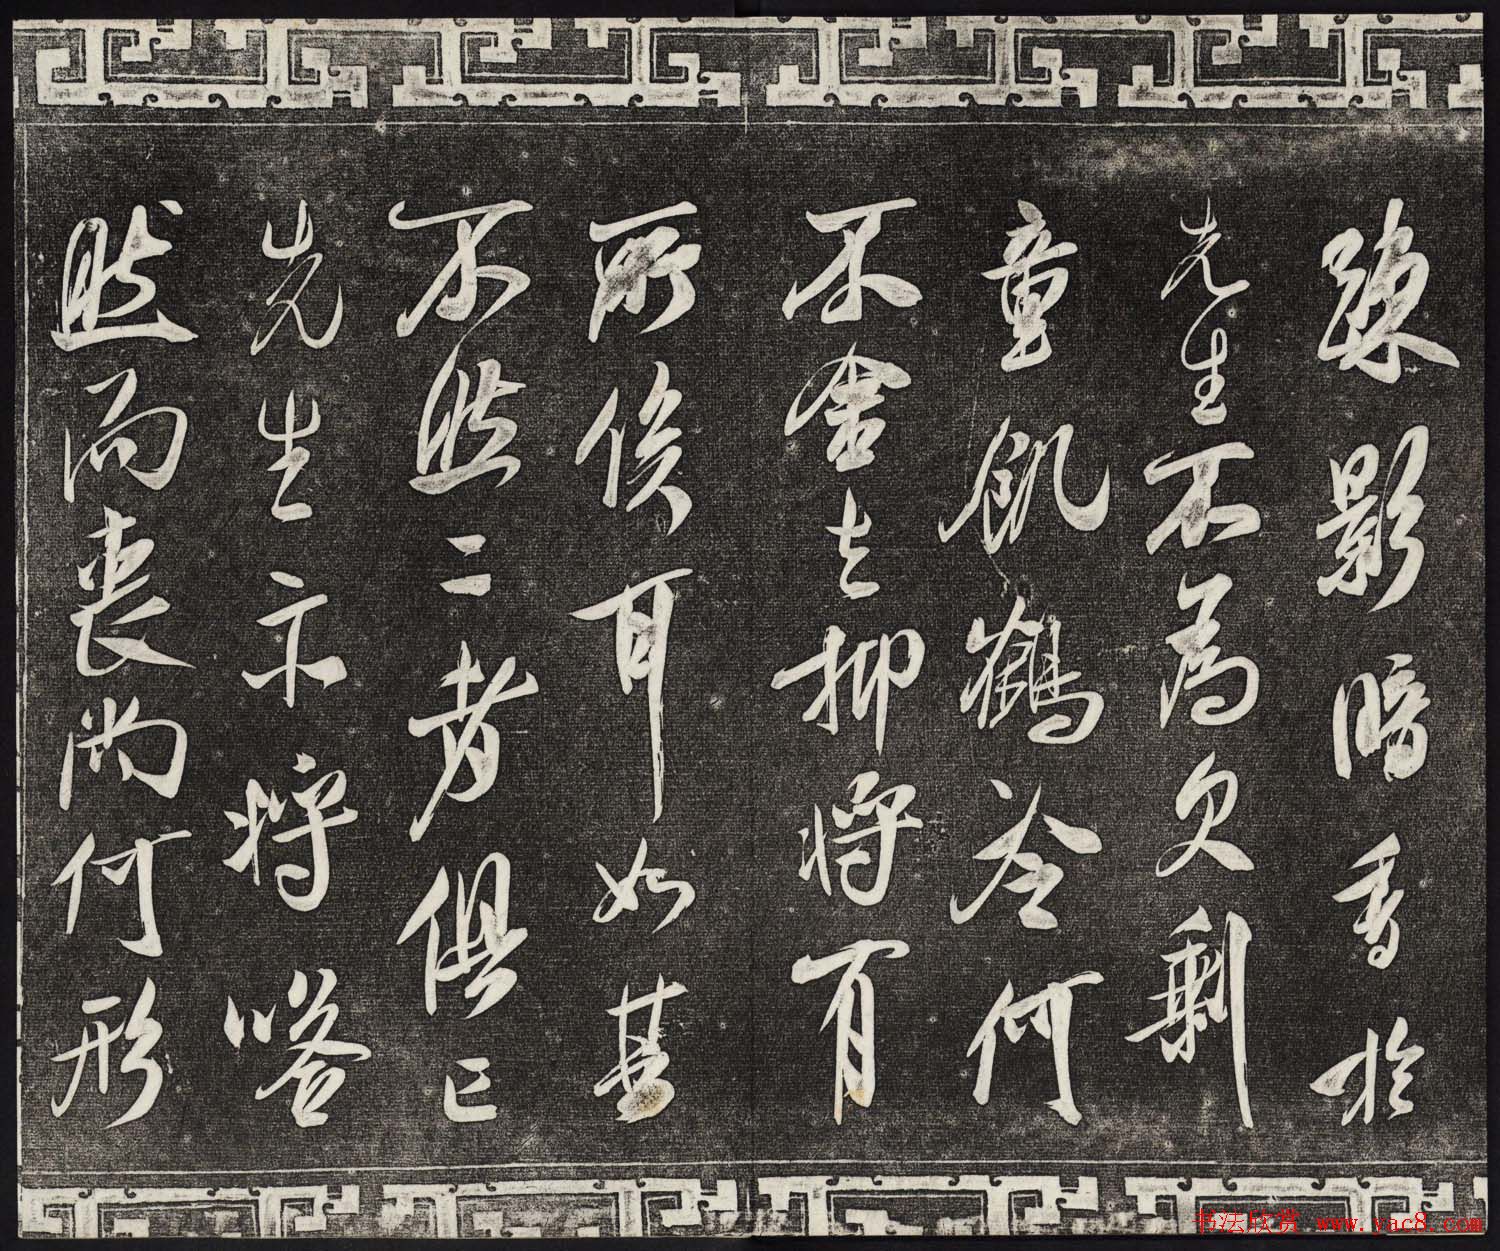 疎影暗香於
先生不為欠剩
童飢鶴冷何
不舍去抑將有
所俟耶如其
不然二者俱亡
先生亦將嗒
然而喪尚何形
书法欣赏 www.yac8.com